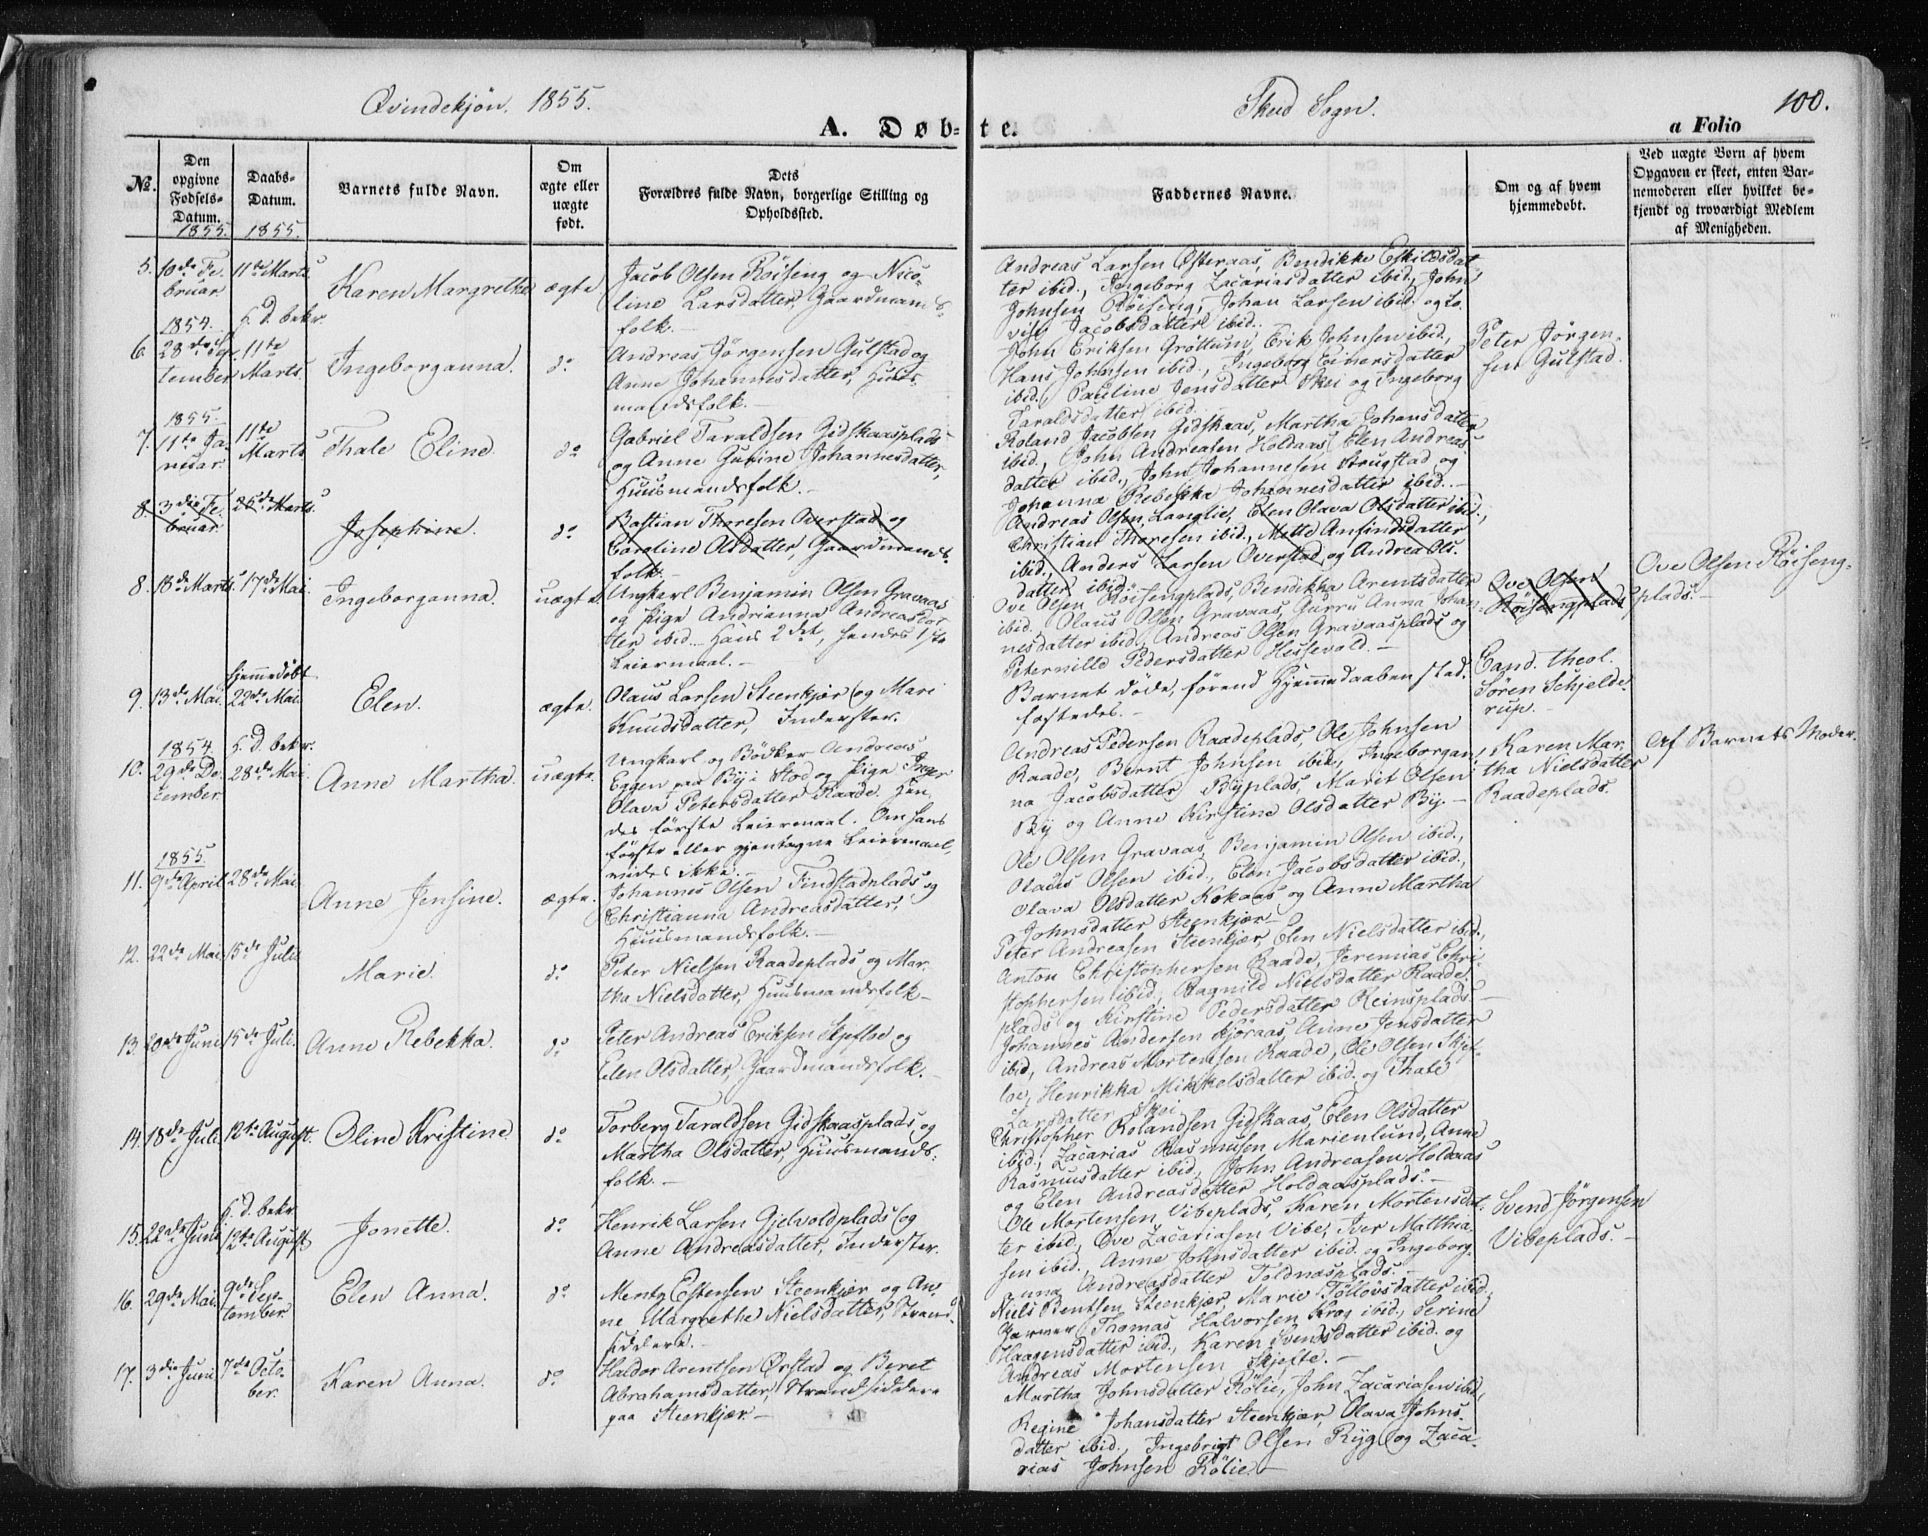 Qvindekjøn. 1855.
Skeid Sogn.
100.
A. Døbte.
a Folio
№.
Den opgivne Fødsels-Datum.
Daabs-Datum.
Barnets fulde Navn.
Om ægte eller uægte født.
Dets Forældres fulde Navn, borgerlige Stilling og Opholdssted.
Faddernes Navne.
Om og af hvem hjemmedøbt.
Ved uægte Børn af hvem
Opgaven er skeet, enten Bar-
nemoderen eller hvilket be-
kjendt og troværdigt Medlem
af Menigheden.
1855. 1855.
5. 10de Fe-
bruar.
11te Marts
Karen Margrethe
ægte
Jacob Olsen Röising og Nico-
line Larsdatter, Gaardmands-
folk.
Andreas Larsen Østeraas, Bendikke Eskildsdat-
ter ibid., Ingeborg Zacariasdatter ibid., John
Johnsen Röising, Johan Larsen ibid. og Lo-
vise Jacobsdatter ibid.
6. 1854.
28de Sep-
tember
h. D. bekr.
11te
Marts
Ingeborganna.
do
Andreas Jörgensen Gulstad og
Anne Johannesdatter, Huus-
mandsfolk.
John Eriksen Gröttum, Erik Johnsen ibid.,
Hans Johnsen ibid., Ingeborg Einersdatter
ibid., Pauline Jensdatter Skei og Ingeborg
Taraldsdatter ibid.
Peter Jörgen-
sen Gulstad.
7. 1855.
11te Ja-
nuar.
11te
Marts
Thale Eline.
do
Gabriel Taraldsen Gidskaasplads
og Anne Gurine Johannesdatter,
Huusmandsfolk.
Roland Jacobsen Gidskaas, Martha Johansdatter
ibid., John Andreasen Holdaas, Elen Andreas-
datter ibid., John Johannesen Strugstad og
Johanna Rebekka Johannesdatter ibid.
8. 3die Fe-
bruar.
25de Marts.
Josephine.
do
Bastian Thoresen Overstad og
Caroline Olsdatter, Gaardmands-
folk.
Andreas Olsen Langlie, Elen Olava Olsdatter ibid.,
Christian Thoresen ibid., Mette Anfindsdatter
ibid., Anders Larsen Overstad og Andrea Ols-
datter ibid.
8. 18de Marts. 17de Mai.
Ingeborganna.
uægte.
Ungkarl Benjamin Olsen Gravaas
og Pige Andrianna Andreasdat-
ter ibid. Hans 2det, hendes 1ste
Leiermaal.
Ove Olsen Röisengplads, Bendikka Arentsdatter
ibid. Olaus Olsen Gravaas, Gurru Anna Johan-
nesdatter ibid., Andreas Olsen Gravaasplads og
Peternille Pedersdatter Hessevold.
Ove Olsen
Röisengplads
Ove Olsen Röiseng-
plads.
9. 13de Mai.
hjemmedøbt
22de Mai.
Elen.
ægte.
Olaus Larsen Steenkjær og Mari
Knudsdatter, Inderster.
Barnet döde, förend Hjemmedaaben stad-
fæstedes.
Cand. theol.
Sören Schjelde-
rup.
10. 1854.
29de De-
cember
h. D. bekr.
28de Mai.
Anne Martha.
uægte.
Ungkarl og Bödker Andreas
Eggen paa By i Stod og Pige Inger
Olava Petersdatter Raade. Hen-
des förste Leiermaal. Om hans
förste eller gjentagne Leiermaal,
vides ikke.
Andreas Pedersen Raadeplads, Ole Johnsen
Raade, Bernt Johnsen ibid., Ingeborgan-
na Jacobsdatter Byplads, Marit Olsen
By og Anne Kirstine Olsdatter By.
Karen Mar-
tha Nielsdatter
Raadeplads.
Af Barnets Moder.
11. 1855.
9de April 28de Mai.
Anne Jensine.
ægte.
Johannes Olsen Findstadplads og
Christianna Andreasdatter,
Huusmandsfolk.
Ole Olsen Gravaas, Benjamin Olsen ibid.,
Olaus Olsen ibid., Elen Jacobsdatter ibid.,
Olava Olsdatter Kokaas og Anne Martha
Johnsdatter Steenkjær
12. 22de Mai 15de Juli
Marie.
do
Peter Nielsen Raadeplads og Mar-
tha Nielsdatter, Huusmandsfolk
Peter Andreasen Steenkjær, Elen Nielsdatter ibid.,
Anton Christophersen Raade, Jeremias Chri-
stophersen ibid, Ragnild Nielsdatter Raade-
plads og Kirstine Pedersdatter Reinsplads.
13. 20de Juni 15de Juli.
Anne Rebekka.
do
Peter Andreas Eriksen Skjefloe og
Elen Olsdatter, Gaardmandsfolk.
Johannes Andersen Kjöraas, Anne Jensdatter
ibid, Andreas Mortensen Raade, Ole Olsen Skjef-
loe, Henrikka Mikkelsdatter ibid. og Thale
Larsdatter Skei
14. 18de Juli 12te August.
Oline Kristine
do
Torberg Taraldsen Gidskaasplads, og
Martha Olsdatter, Huusmands-
folk.
Christopher Rolandsen Gidskaas, Elen Olsdatter
ibid., Zacarias Rasmusen Marienlund, Anna
Rasmusdatter ibid., John Andreasen Holdaas
og Elen Andreasdatter Holdaasplads.
15. 22de Juni
h. D. bekr.
12te August
Jonette.
do
Henrik Larsen Gjelvoldplads og
Anne Andreasdatter, Inderster.
Ole Mortensen Vibeplads, Karen Mortensdat-
ter ibid., Ove Zacariasen Vibe, Iver Matthia-
sen ibid., Anne Johnsdatter ibid. og Ingeborg-
anna Andreasdatter Toldnæsplads.
Svend Jörgensen
Vibeplads.
16. 29de Mai.
9de Sep-
tember.
Elen Anna.
do
Mentz Estensen Steenkjær og An-
ne Margrethe Nielsdatter, Strand-
siddere.
Niels Bentsen Steenkjær, Marie Töllövsdatter ibid.,
Thomas Halvorsen Krog ibid., Serine
Haagensdatter ibid., Karen Svendsdatter ibid. og
Andreas Mortensen Skjefte.
17. 3die Juni
7de Octo-
ber.
Karen Anna.
do
Haldor Arentsen Ørstad og Beret
Abrahamsdatter, Strandsiddere
paa Steenkjær.
Martha Johnsdatter Rölie, John Zacariasen ibid.,
Regine Johansdatter Steenkjær, Olava Johns-
datter ibid., Ingebrigt Olsen Ryg og Zaca-
rias Johnsen Rölie.